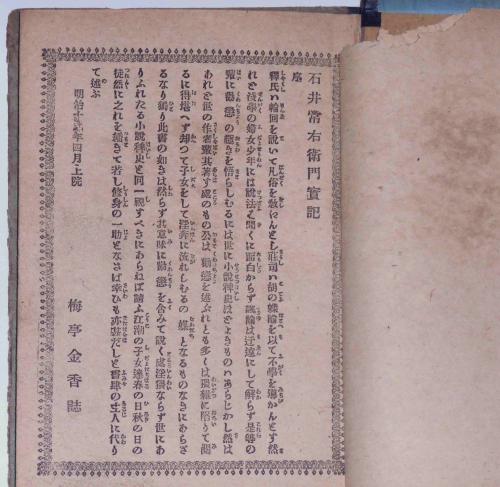 石井常右衛門實記
序
釋氏ハ輪回を説いて凡俗を敎にんとし莊司ハ胡の蝶諭を以て不學を導かんとす然
れど淺學の婦女少年にハ說法ハ聞くに面白からず諷諭ハ迂遠にして解らず是等の
輩に勸懲の趣きを悟らしむるにハ世に小說稗史ほどよきものハあらじかし然ハ
あれど世の作者輩其著す處のもの公ハ勸懲を述ぶれども多くハ猥雜に陷りて聞
るに得堪へず却つて子女をして淫奔に流れしむるの媒となるものなきにあらざ
るなり獨り此書の如きハ然らず其意味に勸懲を含みて說く處淫猥ならず世にあ
りふれたる小說稗史と同一視すべきにあらねば請ふ江湖の子女達春の日秋の日の
徒然に之れを繙きて若し修身の一助となさば幸ひも亦甚だしと書肆の主人に代り
て述ぶ
明治十九年四月上浣
梅亭金香誌